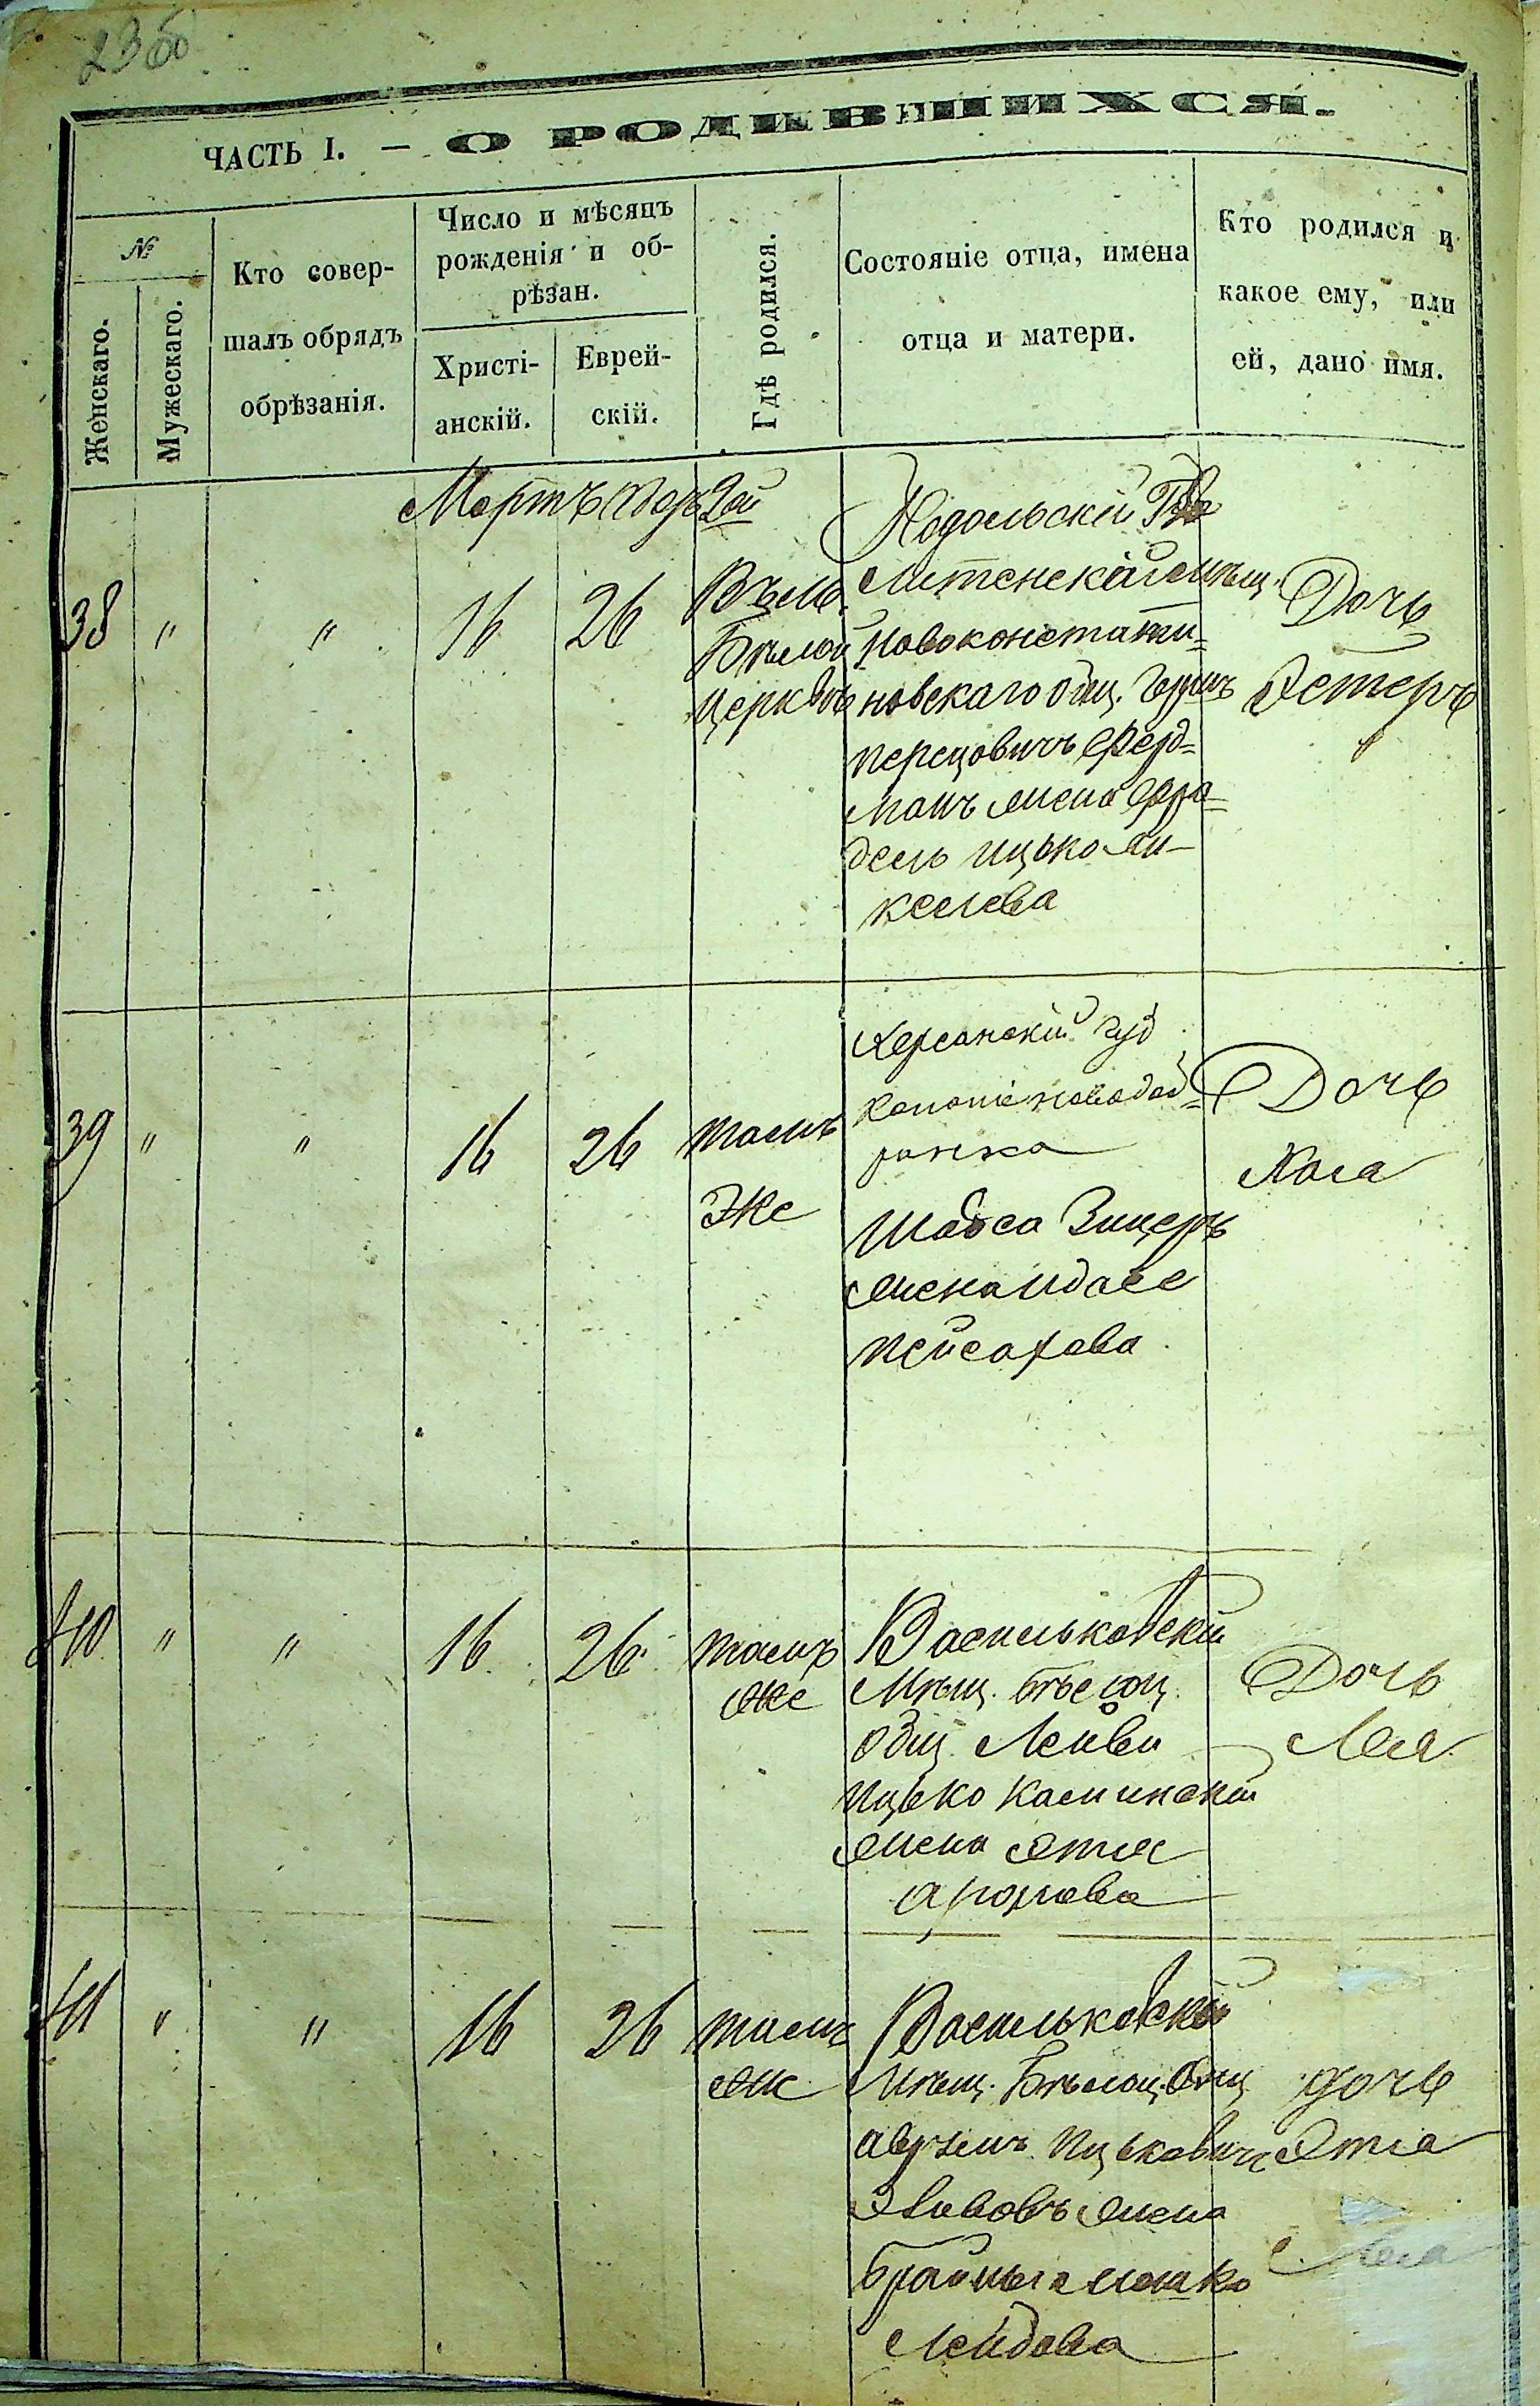 236
ЧАСТЬ I. — О РОДИВШИХСЯ.
№
Женскаго.
Мужескаго.
Кто совер-
шалъ обрядъ
обрѣзанія.
Число и мѣсяцъ
рожденія и об-
рѣзан.
Христі-
анскій.
Еврей-
скій.
Гдѣ родился.
Состояніе отца, имена
отца и матери.
Кто родился и
какое ему, или
ей, дано имя.
Мартъ Адаръ 2ой
38 " " 16 26
Въ м.
Бѣлой
Церквѣ
Подольскій Губ
Литенскаго мѣщ.
Новоконстанти=
новскаго общ. Гершъ
Перецовичъ Фелд=
манъ жена Фра=
дель Ицько Ми-
келева
Дочь
Эстеръ
39 " " 16 26
тамъ
же
Херсонскій губ
Колоніе
Шабса Зицеръ
жена Идасе
Пейсахова
Дочь
Хая
40 " " 16 26
тамъ
же
Васильковскій
Мѣщ. Бѣлоц.
Общ. Лейви
Ицько Каминскій
жена Этя
Аронова
Дочь
Лея
41 " " 16 26
тамъ
же
Васильковскій
Мѣщ. Бѣлоц. Общ
Аврумъ Ицьковичъ
жена
Брайна Мошко
Лейбова
дочь
Этя
Лея